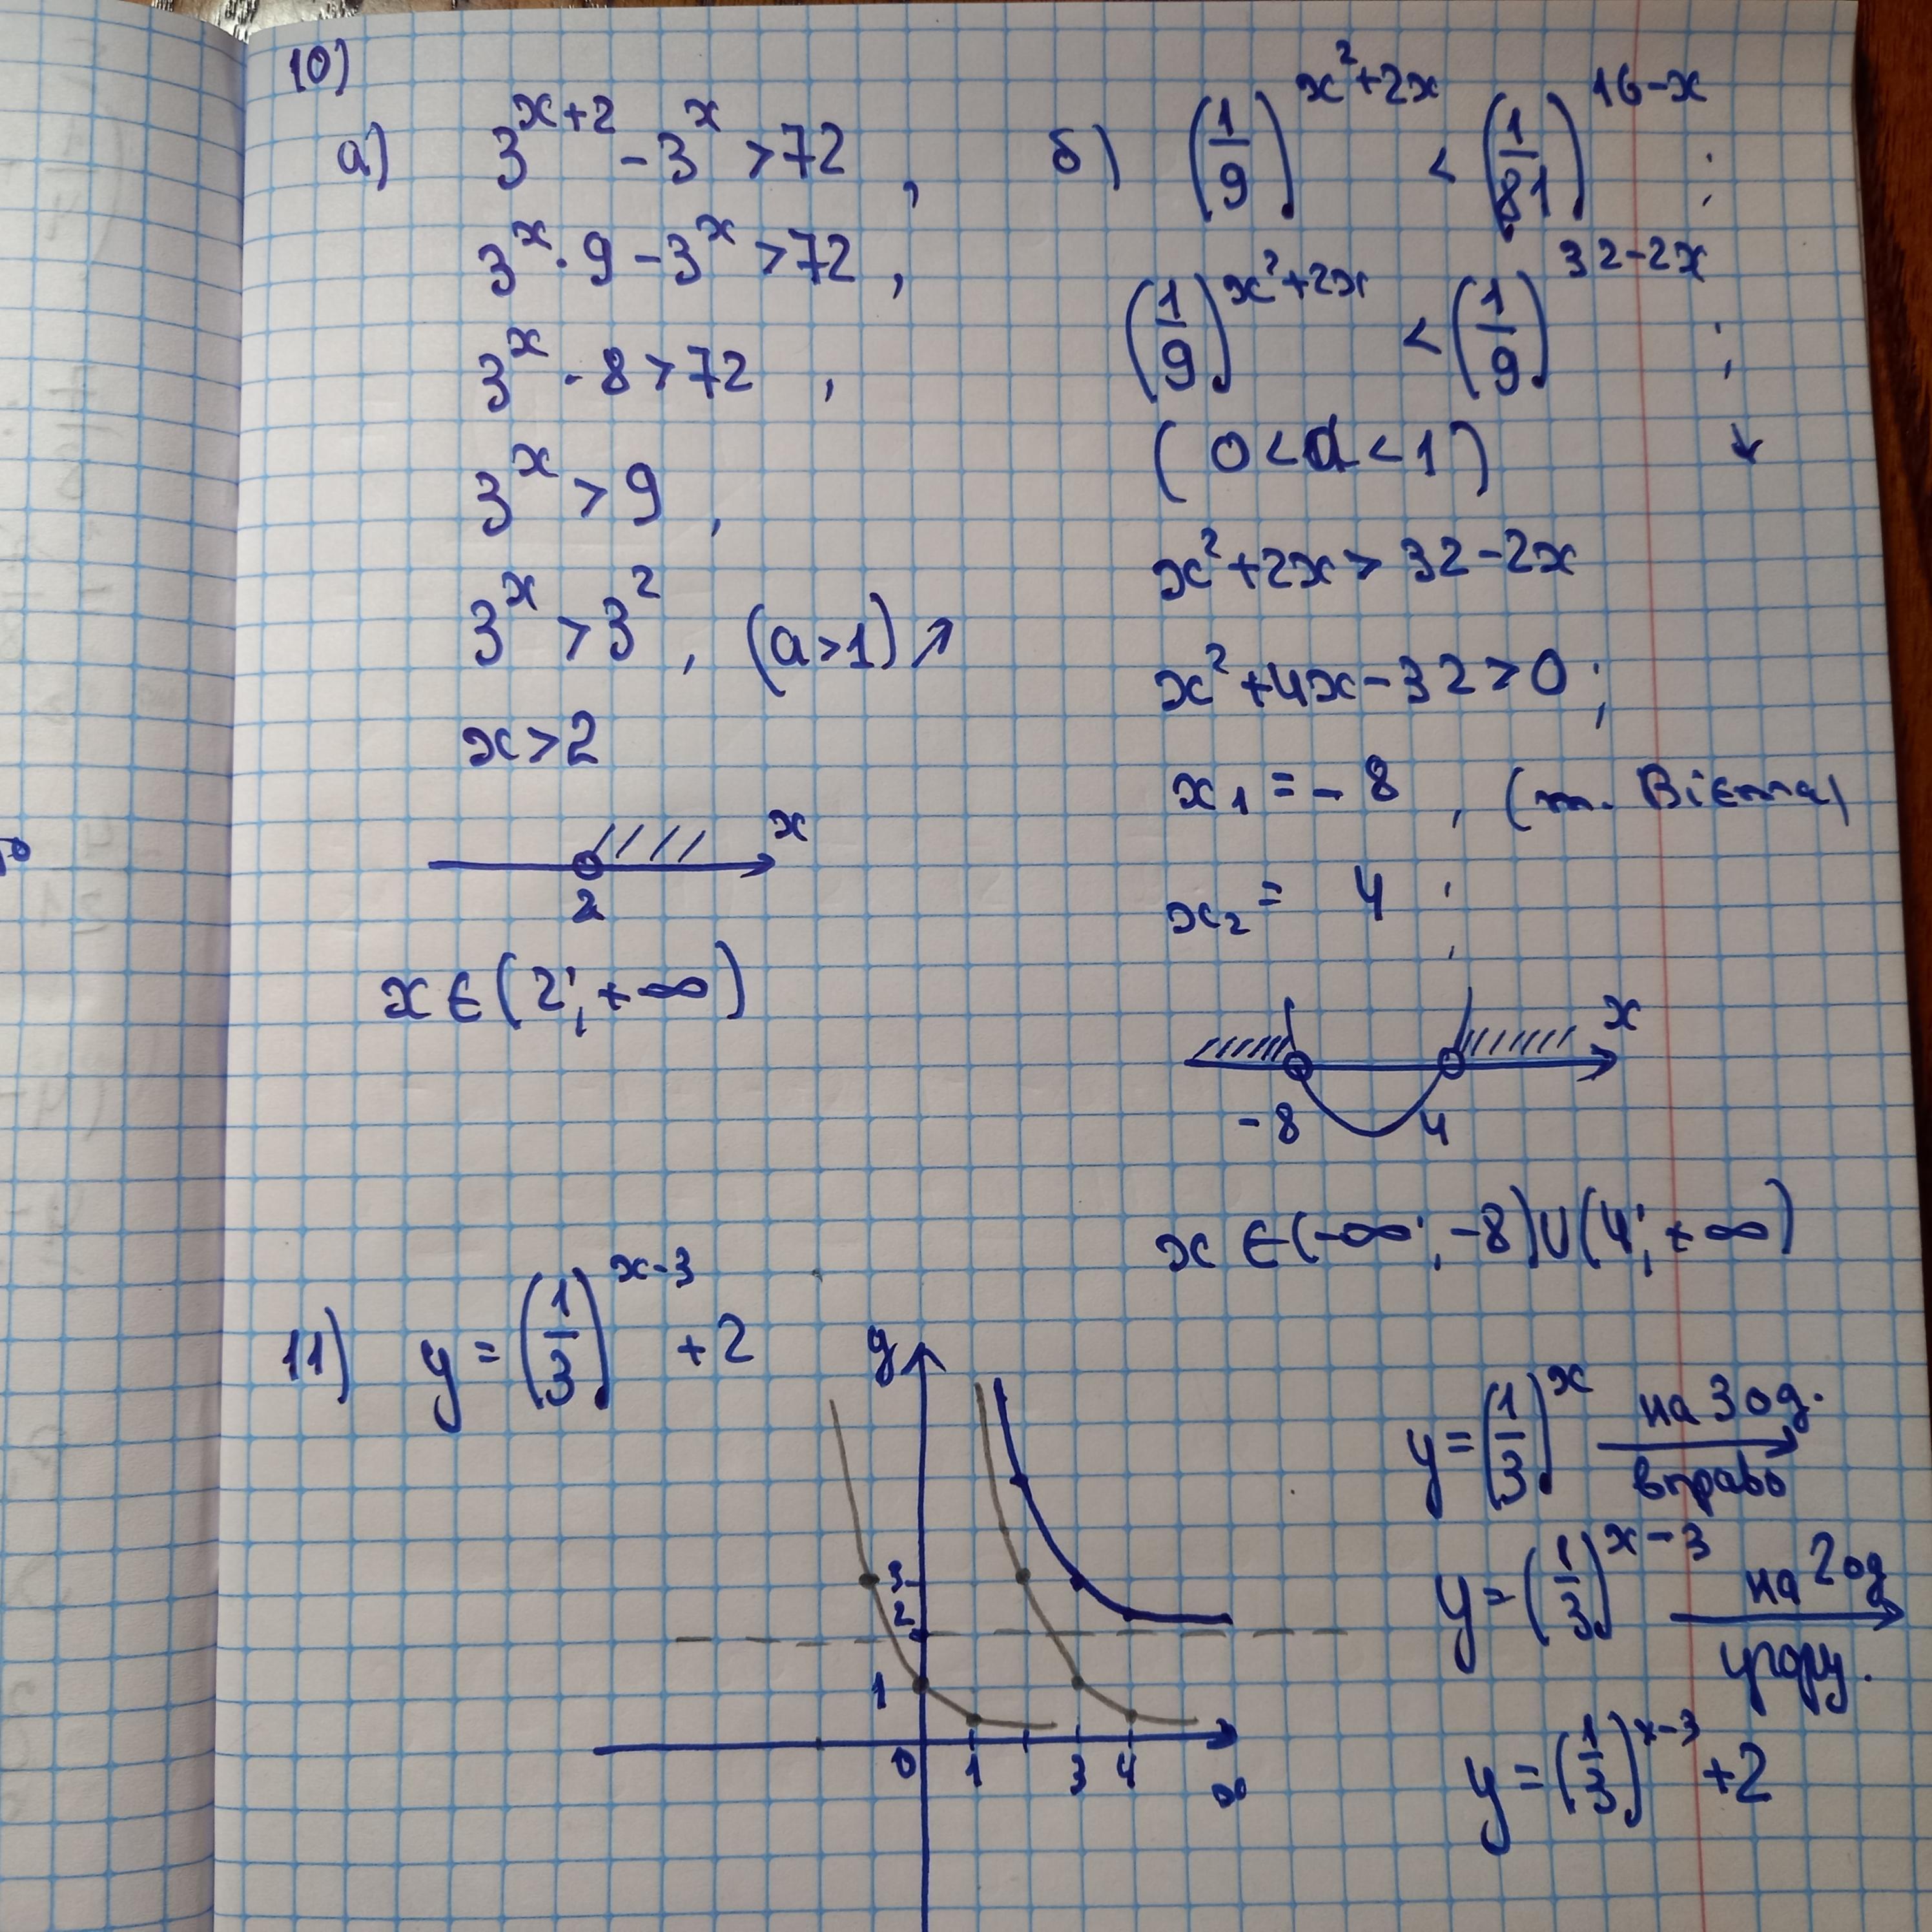 10)
а) 3^{x+2} - 3^x > 72 ,
3^x · 9 - 3^x > 72 ,
3^x · 8 > 72 ,
3^x > 9 ,
3^x > 3^2 , (a > 1) ↗
x > 2
x
2
x ∈ (2; +∞)
б) (1/9)^{x^2+2x} < (1/81)^{16-x} ;
(1/9)^{x^2+2x} < (1/9)^{32-2x} ;
(0 < a < 1) ↘
x^2 + 2x > 32 - 2x
x^2 + 4x - 32 > 0 ;
x_1 = -8 , (т. Вієта)
x_2 = 4 ;
x
-8 4
x ∈ (-∞; -8) ∪ (4; +∞)
11) y = (1/3)^{x-3} + 2
y
3
2
1
0 1 3 4 x
y = (1/3)^x на 3 од. вправо →
y = (1/3)^{x-3} на 2 од угору. →
y = (1/3)^{x-3} + 2